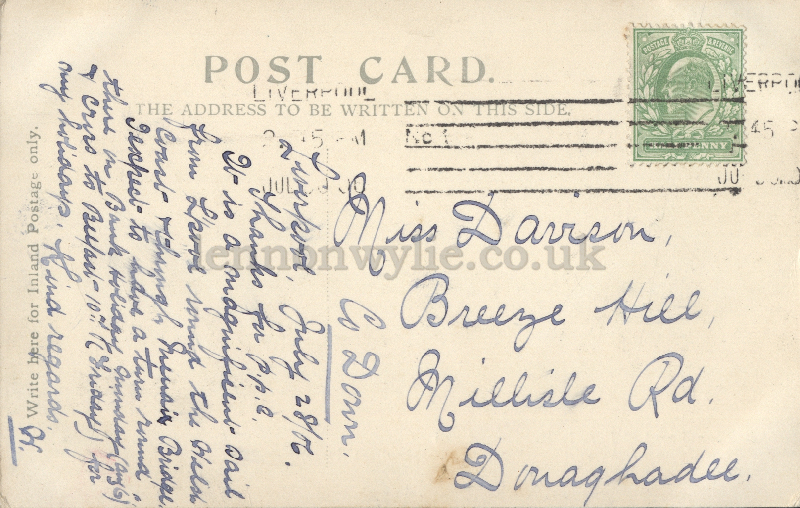 POST CARD.
THE ADDRESS TO BE WRITTEN ON THIS SIDE.
LIVERPOOL
45 PM
No 1
LIVERPOOL
45 P
POSTAGE & REVENUE
PENNY
Write here for Inland Postage only.
Liverpool, July 28/06.
Thanks for p.p.c.
It is a magnificent sail
from L'pool round the Welsh
Coast & through Menai Bridge.
Decided to have a turn round
there on Bank Holiday Monday (Aug 6)
& cross to Belfast 10th (Friday) for
my holidays. Kind regards.
H.
Miss Davison,
Breeze Hill,
Millisle Rd.
Donaghadee.
Co Down.
lennonwylie.co.uk